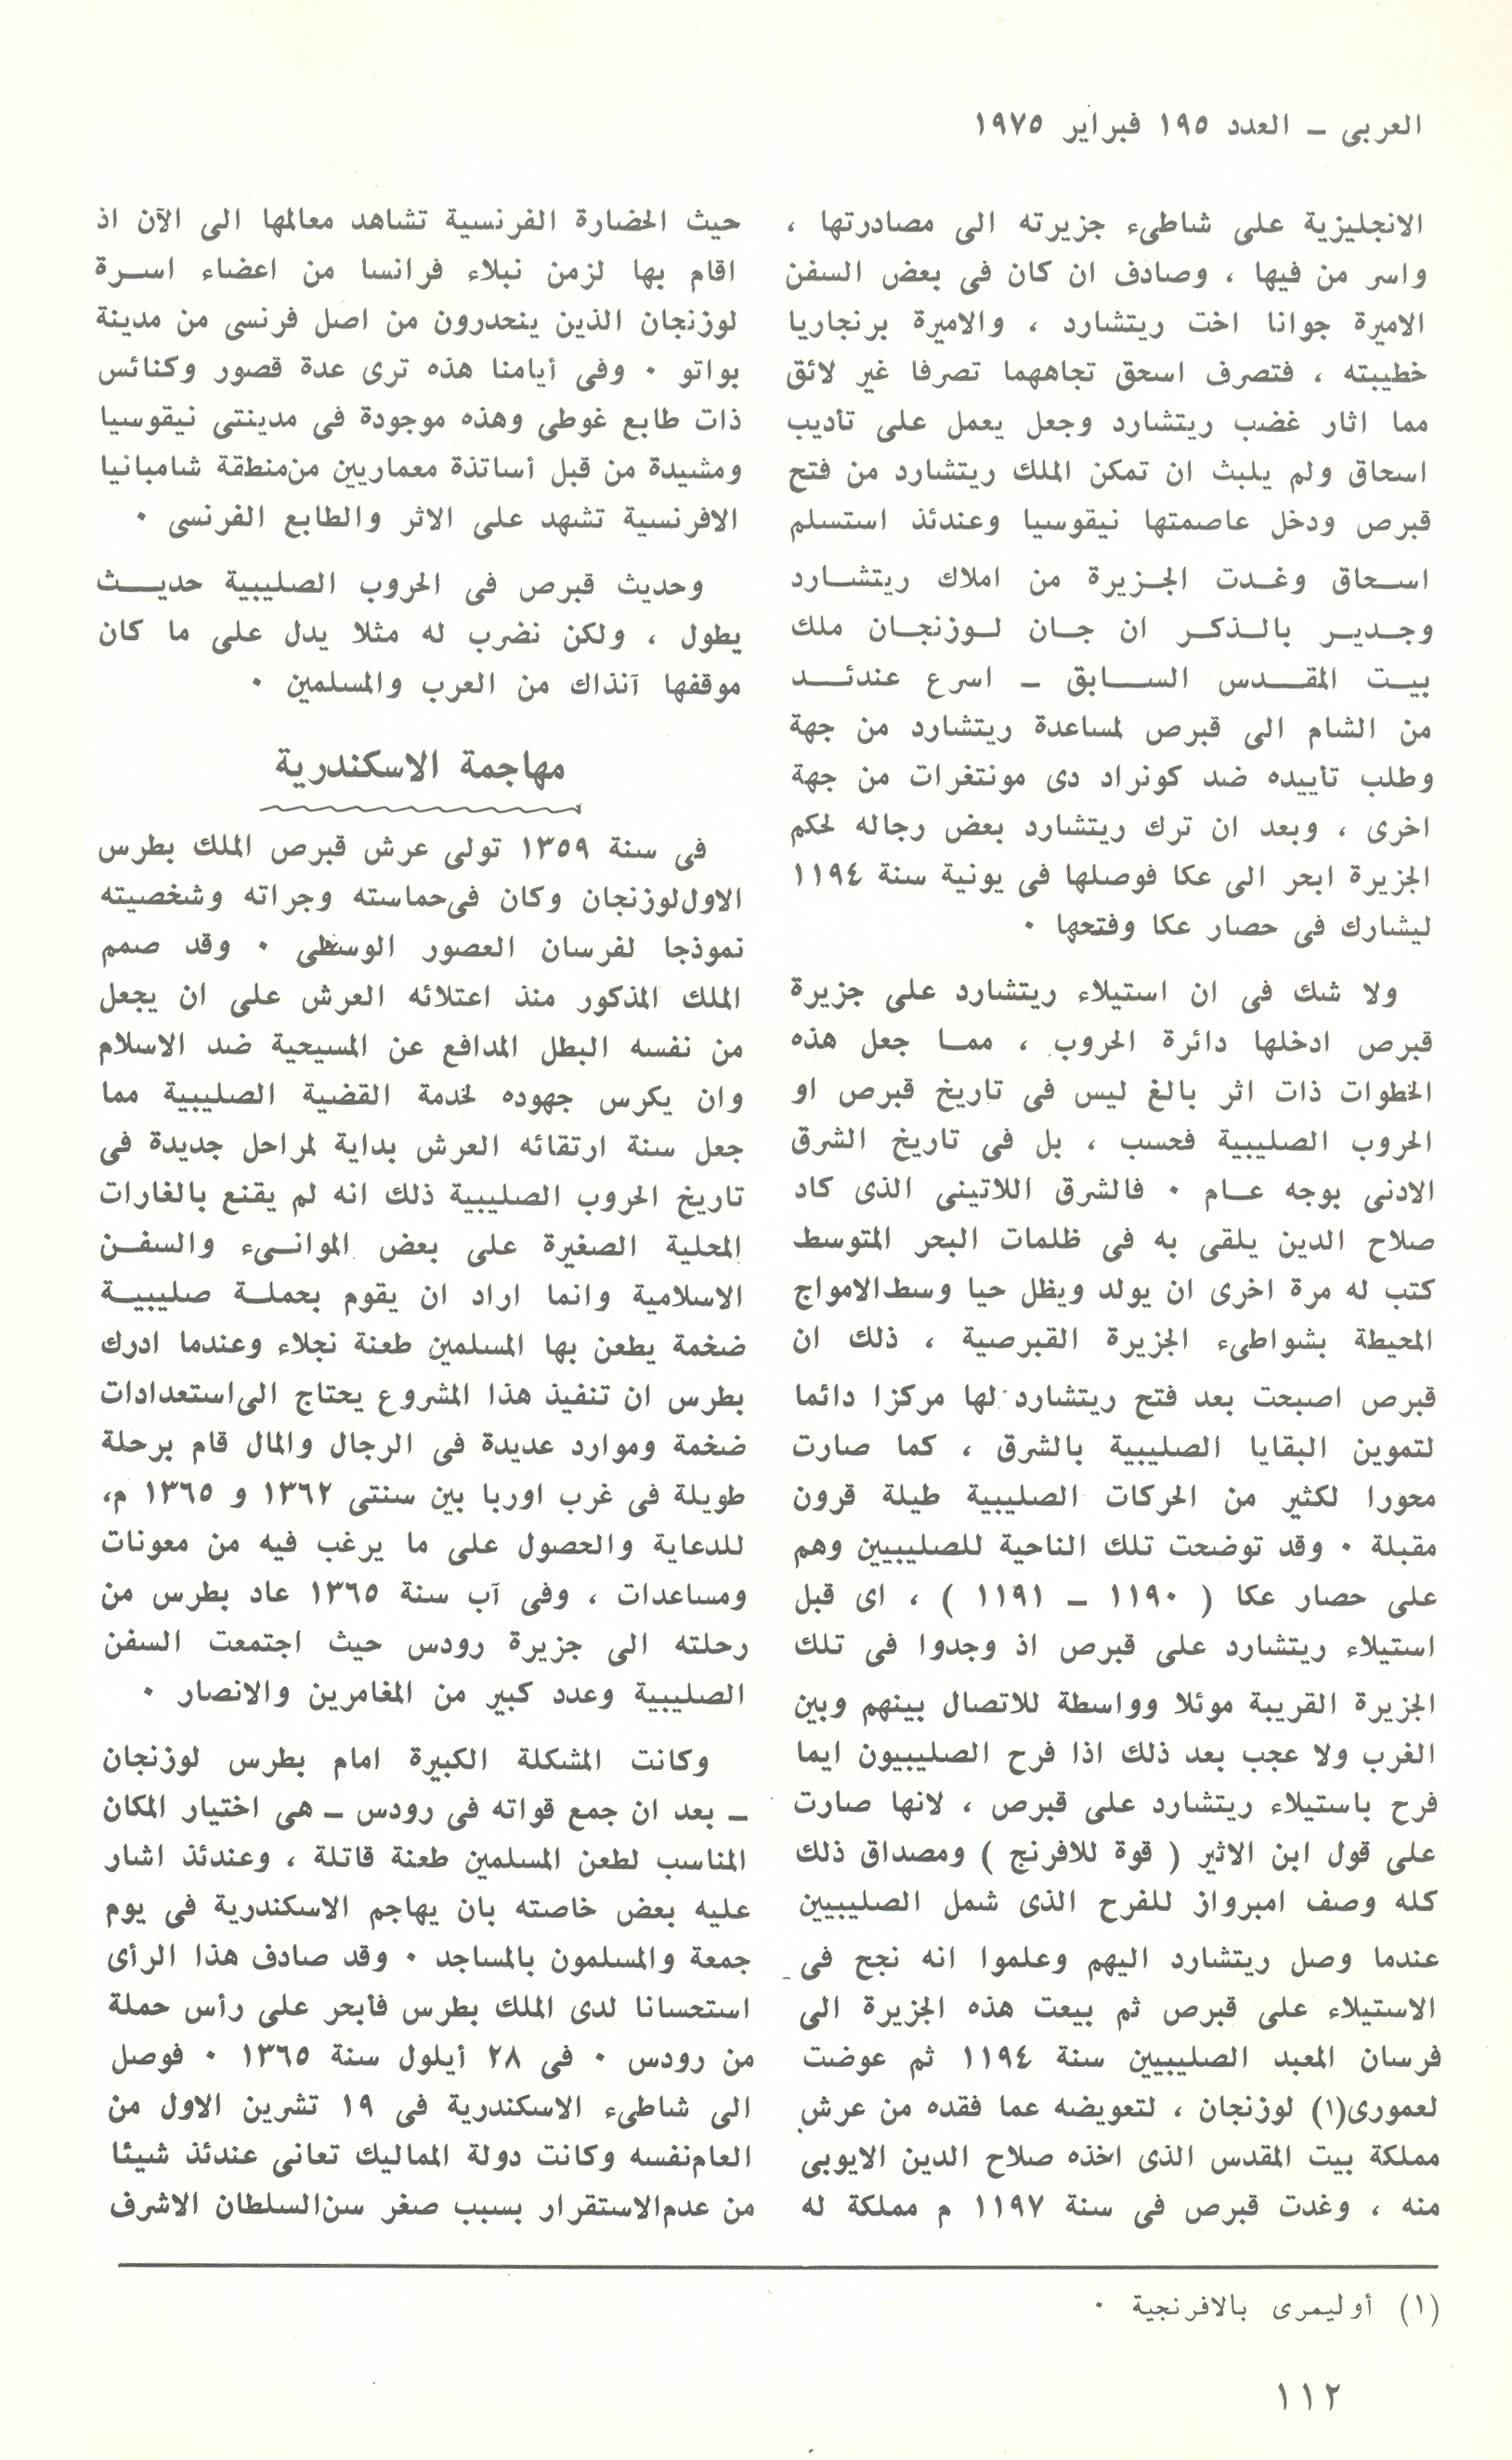 العربى ــ العدد ١٩٥ فبراير ١٩٧٥
الانجليزية على شاطىء جزيرته الى مصادرتها ،
واسر من فيها ، وصادف ان كان فى بعض السفن
الاميرة جوانا اخت ريتشارد ، والاميرة برنجاريا
خطيبته ، فتصرف اسحق تجاههما تصرفا غير لائق
مما اثار غضب ريتشارد وجعل يعمل على تأديب
اسحاق ولم يلبث ان تمكن الملك ريتشارد من فتح
قبرص ودخل عاصمتها نيقوسيا وعندئذ استسلم
اسـحاق وغـدت الجـزيرة من املاك ريتشـارد
وجـديـر بالـذكـر ان جـان لـوزنجـان ملك
بيـت المقـدس السـابق ــ اسرع عندئـد
من الشام الى قبرص لمساعدة ريتشارد من جهة
وطلب تأييده ضد كونراد دى مونتغرات من جهة
اخرى ، وبعد ان ترك ريتشارد بعض رجاله لحكم
الجزيرة ابحر الى عكا فوصلها فى يونية سنة ١١٩٤
ليشارك فى حصار عكا وفتحها ٠
ولا شك فى ان استيلاء ريتشارد على جزيرة
قبرص ادخلها دائرة الحروب ، ممـا جعل هذه
الخطوات ذات اثر بالغ ليس فى تاريخ قبرص او
الحروب الصليبية فحسب ، بل فى تاريخ الشرق
الادنى بوجه عـام ٠ فالشرق اللاتينى الذى كاد
صلاح الدين يلقى به فى ظلمات البحر المتوسط
كتب له مرة اخرى ان يولد ويظل حيا وسط الامواج
المحيطة بشواطىء الجزيرة القبرصية ، ذلك ان
قبرص اصبحت بعد فتح ريتشارد لها مركزا دائما
لتموين البقايا الصليبية بالشرق ، كما صارت
محورا لكثير من الحركات الصليبية طيلة قرون
مقبلة ٠ وقد توضحت تلك الناحية للصليبيين وهم
على حصار عكا ( ١١٩٠ ــ ١١٩١ ) ، اى قبل
استيلاء ريتشارد على قبرص اذ وجدوا فى تلك
الجزيرة القريبة موئلا وواسطة للاتصال بينهم وبين
الغرب ولا عجب بعد ذلك اذا فرح الصليبيون ايما
فرح باستيلاء ريتشارد على قبرص ، لانها صارت
على قول ابن الاثير ( قوة للافرنج ) ومصداق ذلك
كله وصف امبرواز للفرح الذى شمل الصليبيين
عندما وصل ريتشارد اليهم وعلموا انه نجح فى
الاستيلاء على قبرص ثم بيعت هذه الجزيرة الى
فرسان المعبد الصليبيين سنة ١١٩٤ ثم عوضت
لعمورى(١) لوزنجان ، لتعويضه عما فقده من عرش
مملكة بيت المقدس الذى اخذه صلاح الدين الايوبى
منه ، وغدت قبرص فى سنة ١١٩٧ م مملكة له
حيث الحضارة الفرنسية تشاهد معالمها الى الآن اذ
اقام بها لزمن نبلاء فرانسا من اعضاء اسـرة
لوزنجان الذين ينحدرون من اصل فرنسى من مدينة
بواتو ٠ وفى أيامنا هذه ترى عدة قصور وكنائس
ذات طابع غوطى وهذه موجودة فى مدينتى نيقوسيا
ومشيدة من قبل أساتذة معماريين من منطقة شامبانيا
الافرنسية تشهد على الاثر والطابع الفرنسى ٠
وحديث قبرص فى الحروب الصليبية حديـث
يطول ، ولكن نضرب له مثلا يدل على ما كان
موقفها آنذاك من العرب والمسلمين ٠
مهاجمة الاسكندرية
فى سنة ١٣٥٩ تولى عرش قبرص الملك بطرس
الاول لوزنجان وكان فى حماسته وجراته وشخصيته
نموذجا لفرسان العصور الوسطى ٠ وقد صمم
الملك المذكور منذ اعتلائه العرش على ان يجعل
من نفسه البطل المدافع عن المسيحية ضد الاسلام
وان يكرس جهوده لخدمة القضية الصليبية مما
جعل سنة ارتقائه العرش بداية لمراحل جديدة فى
تاريخ الحروب الصليبية ذلك انه لم يقنع بالغارات
المحلية الصغيرة على بعض الموانـىء والسفـن
الاسلامية وانما اراد ان يقوم بحملـة صليبيـة
ضخمة يطعن بها المسلمين طعنة نجلاء وعندما ادرك
بطرس ان تنفيذ هذا المشروع يحتاج الى استعدادات
ضخمة وموارد عديدة فى الرجال والمال قام برحلة
طويلة فى غرب اوربا بين سنتى ١٣٦٢ و ١٣٦٥ م،
للدعاية والحصول على ما يرغب فيه من معونات
ومساعدات ، وفى آب سنة ١٣٦٥ عاد بطرس من
رحلته الى جزيرة رودس حيث اجتمعت السفن
الصليبية وعدد كبير من المغامرين والانصار ٠
وكانت المشكلة الكبيرة امام بطرس لوزنجان
ــ بعد ان جمع قواته فى رودس ــ هى اختيار المكان
المناسب لطعن المسلمين طعنة قاتلة ، وعندئذ اشار
عليه بعض خاصته بان يهاجم الاسكندرية فى يوم
جمعة والمسلمون بالمساجد ٠ وقد صادف هذا الرأى
استحسانا لدى الملك بطرس فأبحر على رأس حملة
من رودس ٠ فى ٢٨ أيلول سنة ١٣٦٥ ٠ فوصل
الى شاطىء الاسكندرية فى ١٩ تشرين الاول من
العام نفسه وكانت دولة المماليك تعانى عندئذ شيئا
من عدم الاستقرار بسبب صغر سن السلطان الاشرف
(١) أوليمرى بالافرنجية ٠
١١٢